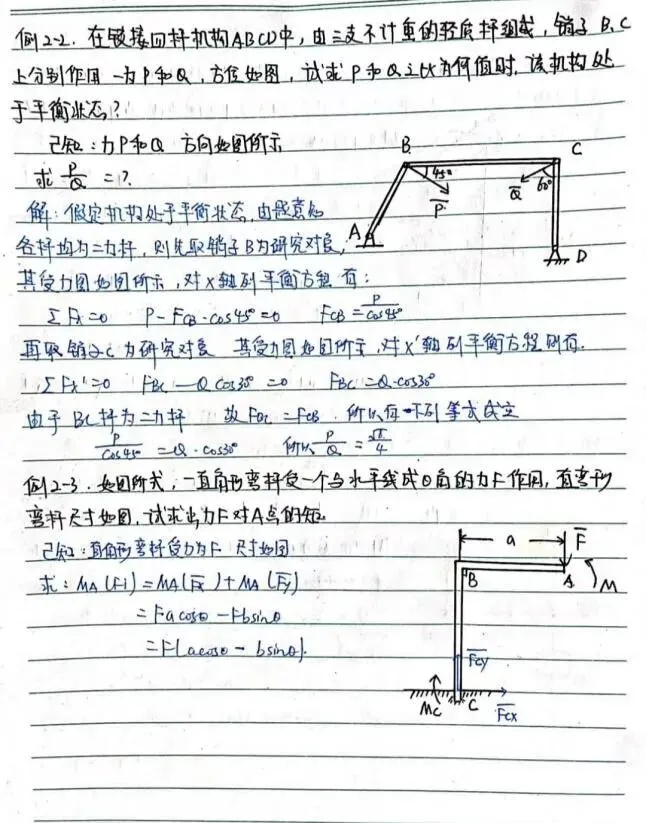 例2-2. 在铰接四杆机构ABCD中, 由三支不计重的轻质杆组成, 销子 B、C
上分别作用一力P和Q, 方位如图, 试求P和Q之比为何值时, 该机构处
于平衡状态?
已知: 力P和Q 方向如图所示
求 P/Q =?
B
C
45°
P
Q
60°
A
D
解: 假定机构处于平衡状态, 由题意知
各杆均为二力杆, 则先取销子B为研究对象,
其受力图如图所示, 对X轴列平衡方程 有:
ΣFx=0 P-FCB·cos45°=0 FCB=P/cos45°
再取销子C为研究对象 其受力图如图所示, 对X'轴列平衡方程则有.
ΣFx'=0 FBC-Qcos30°=0 FBC=Q·cos30°
由于BC杆为二力杆 故FBC=FCB. 所以有下列等式成立
P/cos45°=Q·cos30° 所以 P/Q=√6/4
例2-3. 如图所式, 一直角形弯杆受一个与水平线成θ角的力F作用, 直弯形
弯杆尺寸如图, 试求出力F对A点的矩
已知: 直角形弯杆受力为F 尺寸如图
求: MA(Fi)=MA(Fx)+MA(Fy)
=Facosθ-Fbsinθ
=F(acosθ-bsinθ).
a
F
B
A
M
Fcy
Mc
C
Fcx